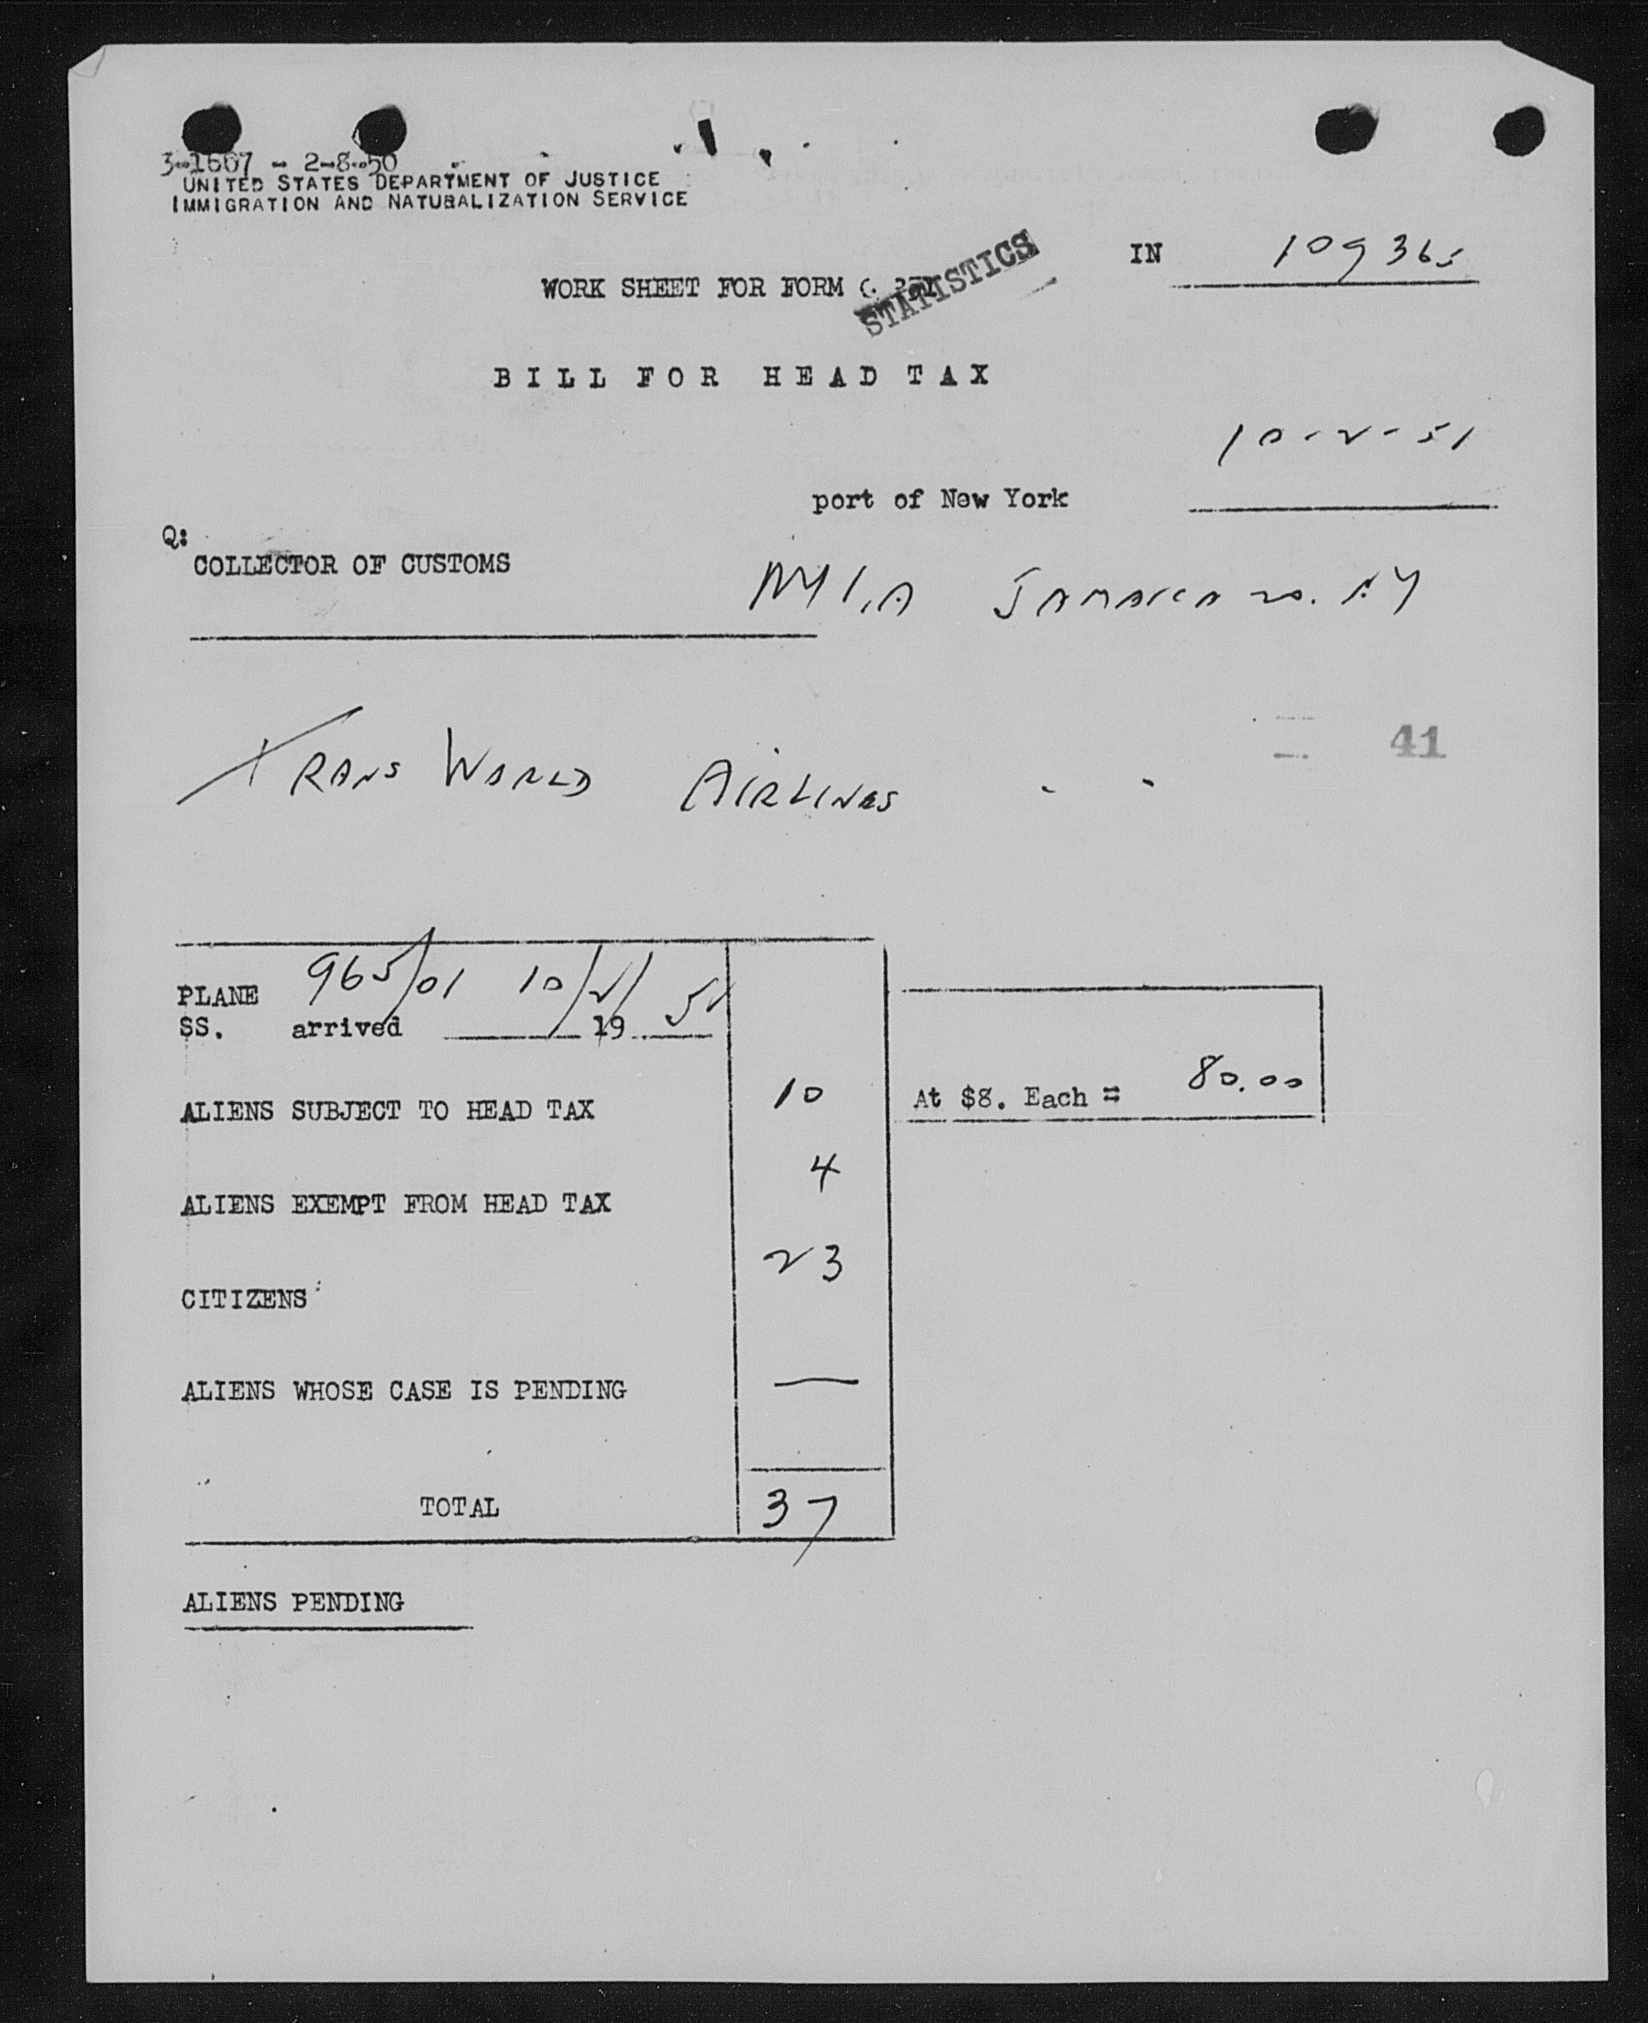 3-1567 - 2-8-50
UNITED STATES DEPARTMENT OF JUSTICE
IMMIGRATION AND NATURALIZATION SERVICE
IN 109365
WORK SHEET FOR FORM
STATISTICS
BILL FOR HEAD TAX
10-2-51
port of New York
Q:
COLLECTOR OF CUSTOMS
NYIA JAMAICA 20. NY
41
TRANS WORLD AIRLINES
PLANE 965/01 10/2/
SS. arrived 19 51
ALIENS SUBJECT TO HEAD TAX 10 At $8. Each = 80.00
ALIENS EXEMPT FROM HEAD TAX 4
CITIZENS 23
ALIENS WHOSE CASE IS PENDING —
TOTAL 37
ALIENS PENDING